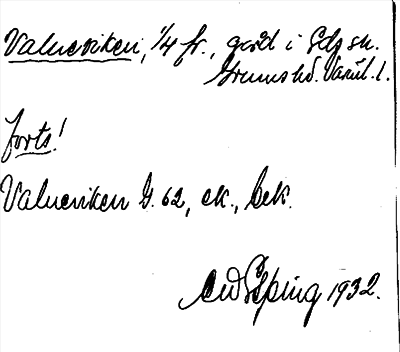 Valneviken, 1/4 fr., gård i Edg sn.
Grums hd. Värml. l.
forts!
Valneviken G. 62, ek., bek.
1932.